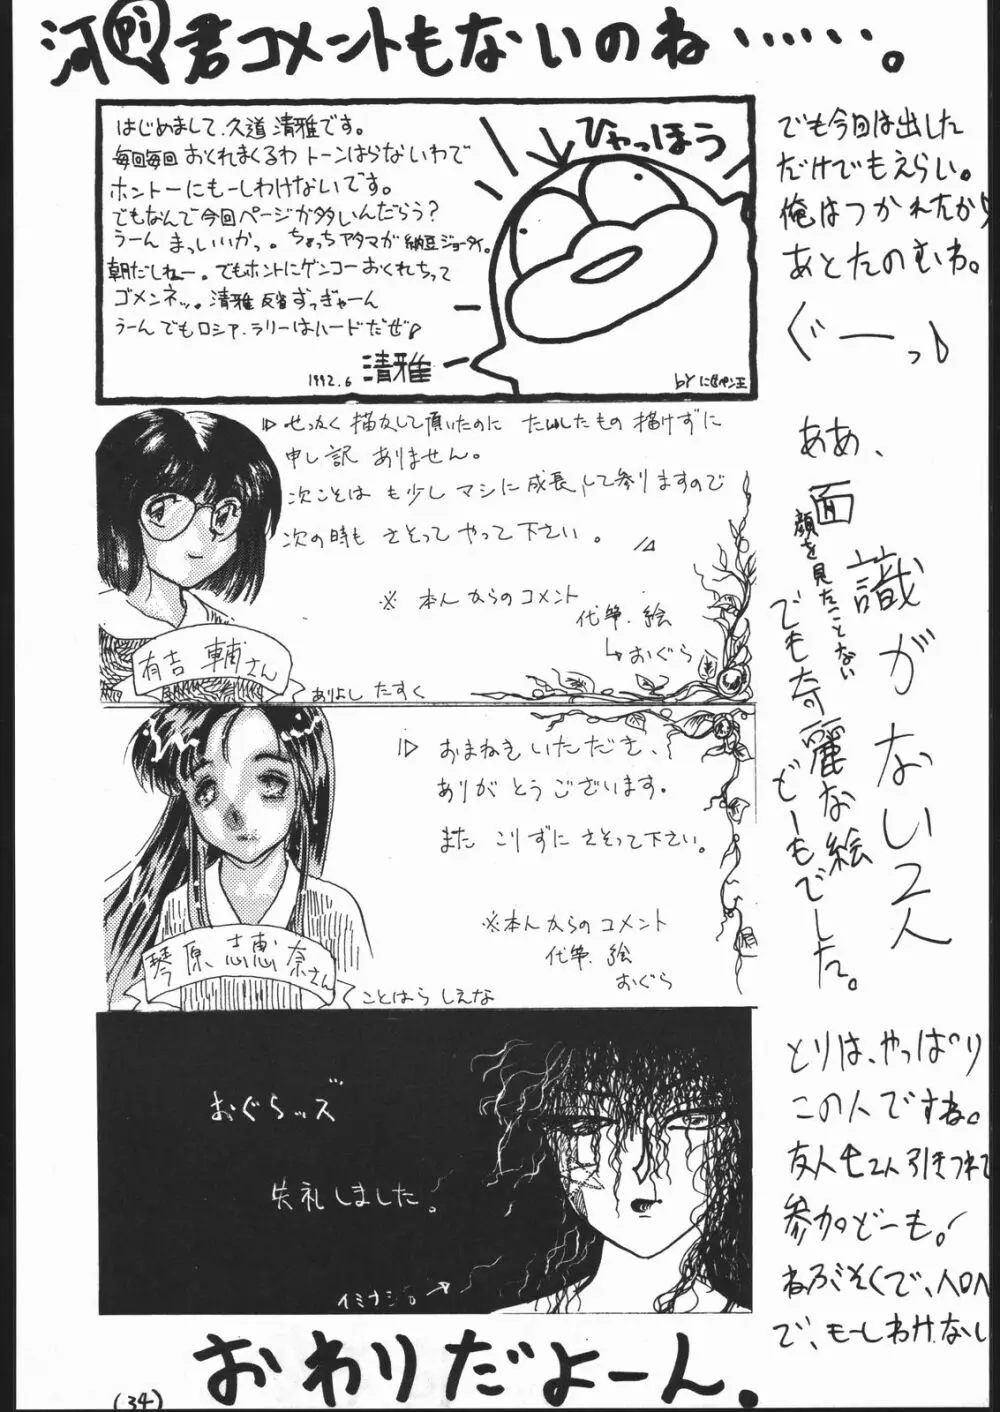 河 Pi 君コメントもないのね……。
はじめまして、久道 清雅です。
毎回毎回 おくれまくるわ トーンはらないわで
ホントーにもーしわけないです。
でもなんで今回ページが多いんだろう?
うーん まっいいかっ。ちょっちアタマが納豆ジョータイ。
朝だしねー。でもホントにゲンコーおくれちって
ゴメンネッ。清雅 反省 ずっぎゃーん
うーん でもロシア・ラリーはハードだぜ♪
1992.6 清雅
ひゃっほう
by
でも今回は出した
だけでもえらい。
俺はつかれたから
あとたのむね。
ぐーっ♪
せっかく 描かして頂いたのに たいしたもの 描けずに
申し訳 ありません。
次こそは も少し マシに 成長して参りますので
次の時も さそって やって 下さい。
※ 本人からのコメント
代筆、絵
↳ おぐら
有吉 輔さん
ありよし たすく
ああ、
面識がない2人
顔を見たことない
でも奇麗な絵
どーもでした。
おまねき いただき、
ありがとうございます。
また こりずに さそって下さい。
※本人からのコメント
代筆、絵
おぐら
琴原 志恵奈さん
ことはら しえな
おぐらッズ
失礼しました。
イミナシ。→
とりは、やっぱり
この人ですね。
友人も2人引きつれて
参加どーも。
ねぶそくで、
で、もーしわけなし
おわりだよーん。
(34)